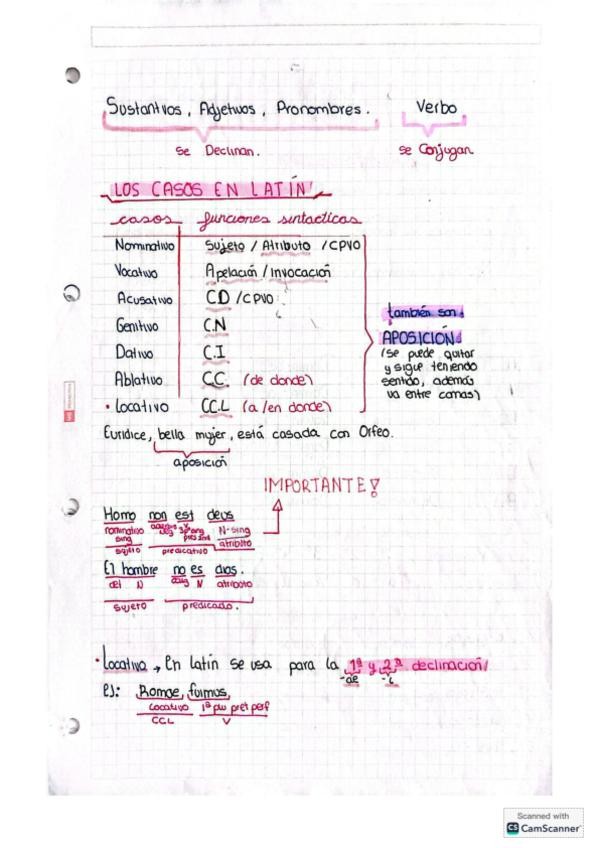 Sustantivos, Adjetivos, Pronombres.
Verbo
se Declinan.
se Conjugan
LOS CASOS EN LATÍN
casos
funciones sintacticas
Nominativo Sujeto / Atributo / CPVO
Vocativo Apelación / Invocación
Acusativo CD / CPVO
Genitivo C.N
Dativo C.I
Ablativo C.C. (de donde)
• Locativo CC.L (a/en donde)
también son
APOSICIÓN
(se puede quitar
y sigue teniendo
sentido, además
va entre comas)
Eurídice, bella mujer, está casada con Orfeo.
aposición
IMPORTANTE!
Homo non est deus
nominativo
sing
N-sing
sujeto
predicativo
atributo
El hombre no es dios.
det N
N atributo
sujeto
predicado.
• Locativo → En latín se usa para la 1ª y 2ª declinación
-ae -i
ej: Romae, fuimus,
Locativo 1ª plu pret perf
CCL V
Scanned with
CS CamScanner